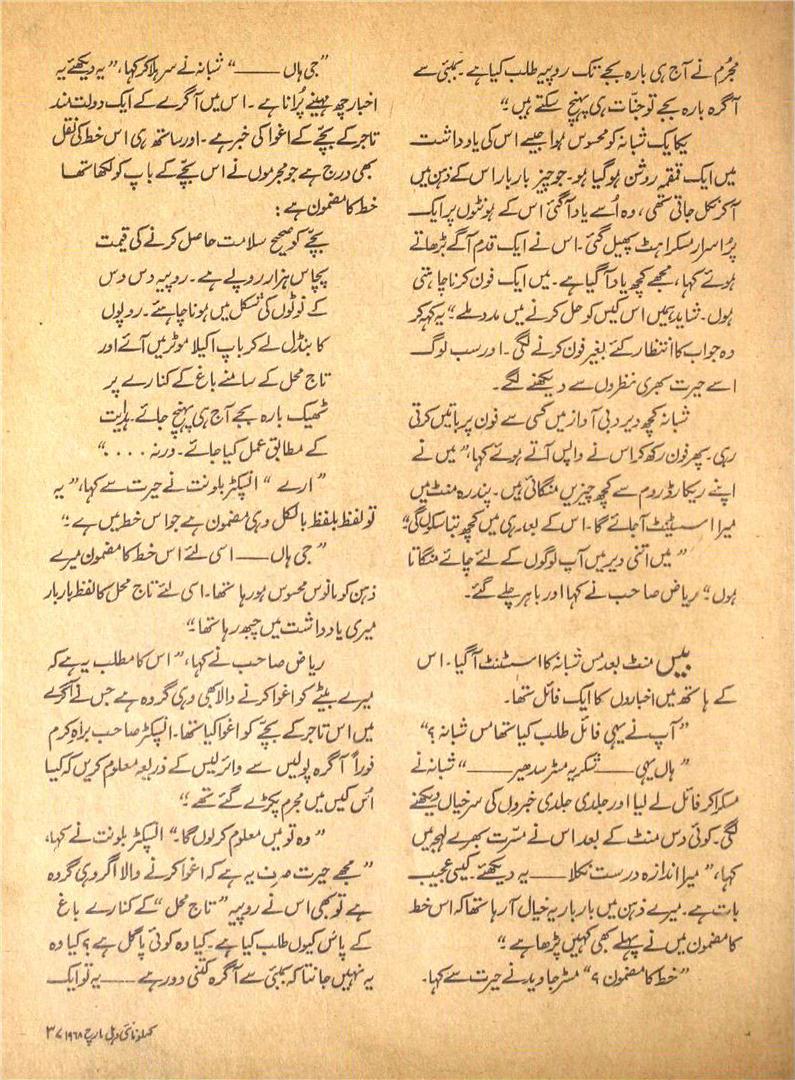 مجرم نے آج ہی بارہ بجے تک روپیہ طلب کیا ہے۔ بمبئی سے
آگرہ بارہ بجے تو جنّات ہی پہنچ سکتے ہیں“
یکایک شبانہ کو محسوس ہوا جیسے اس کی یادداشت
میں ایک قمقمہ روشن ہو گیا ہو۔ جو چیز بار بار اس کے ذہن میں
آکر نکل جاتی تھی، وہ اُسے یاد آگئی اس کے ہونٹوں پر ایک
پُراسرار مسکراہٹ پھیل گئی۔ اس نے ایک قدم آگے بڑھاتے
ہوئے کہا، مجھے کچھ یاد آگیا ہے۔ میں ایک فون کرنا چاہتی
ہوں۔ شاید ہمیں اس کیس کو حل کرنے میں مدد ملے“ یہ کہہ کر
وہ جواب کا انتظار کئے بغیر فون کرنے لگی۔ اور سب لوگ
اسے حیرت بھری نظروں سے دیکھنے لگے۔
شبانہ کچھ دیر دبی آواز میں کسی سے فون پر باتیں کرتی
رہی۔ پھر فون رکھ کر اس نے واپس آتے ہوئے کہا،” میں نے
اپنے ریکارڈ روم سے کچھ چیزیں منگائی ہیں۔ پندرہ منٹ میں
میرا اسسٹینٹ آجائے گا۔ اس کے بعد ہی میں کچھ بتا سکوں گی“
” میں اتنی دیر میں آپ لوگوں کے لئے چائے منگاتا
ہوں“ ریاض صاحب نے کہا اور باہر چلے گئے۔
بیس منٹ بعد مس شبانہ کا اسسٹنٹ آگیا۔ اس
کے ہاتھ میں اخباروں کا ایک فائل تھا۔
”آپ نے یہی فائل طلب کیا تھا مس شبانہ؟“
” ہاں یہی —— شکریہ مسٹر سدھیر ——“ شبانہ نے
مسکرا کر فائل لے لیا اور جلدی جلدی خبروں کی سرخیاں دیکھنے
لگی۔ کوئی دس منٹ کے بعد اس نے مسّرت بھرے لہجہ میں
کہا،” میرا اندازہ درست نکلا —— یہ دیکھئے۔ کیسی عجیب
بات ہے۔ میرے ذہن میں بار بار یہ خیال آرہا تھا کہ اس خط
کا مضمون میں نے پہلے بھی کہیں پڑھا ہے“
”خط کا مضمون؟“ مسٹر جاوید نے حیرت سے کہا۔
”جی ہاں ——“ شبانہ نے سر ہلا کر کہا،” یہ دیکھئے یہ
اخبار چھ مہینے پُرانا ہے۔ اس میں آگرے کے ایک دولت مند
تاجر کے بچّے کے اغوا کی خبر ہے۔ اور ساتھ ہی اس خط کی نقل
بھی درج ہے جو مجرموں نے اس بچّے کے باپ کو لکھا تھا
خط کا مضمون ہے:
بچّے کو صحیح سلامت حاصل کرنے کی قیمت
پچاس ہزار روپے ہے۔ روپیہ دس دس
کے نوٹوں کی شکل میں ہونا چاہئے۔ روپوں
کا بنڈل لے کر باپ اکیلا موٹر میں آئے اور
تاج محل کے سامنے باغ کے کنارے پر
ٹھیک بارہ بجے آج ہی پہنچ جائے۔ ہدایت
کے مطابق عمل کیا جائے۔ ورنہ . . . .“
” ارے “ انسپکٹر بلونت نے حیرت سے کہا،” یہ
تو لفظ بلفظ بالکل وہی مضمون ہے جو اس خط میں ہے“
” جی ہاں —— اسی لئے اس خط کا مضمون میرے
ذہن کو مانوس محسوس ہو رہا تھا۔ اسی لئے تاج محل کا لفظ بار بار
میری یادداشت میں چبھ رہا تھا“
ریاض صاحب نے کہا،” اس کا مطلب یہ ہے کہ
میرے بیٹے کو اغوا کرنے والا بھی وہی گروہ ہے جس نے آگرے
میں اس تاجر کے بچّے کو اغوا کیا تھا۔ انسپکٹر صاحب براہِ کرم
فوراً آگرہ پولیس سے وائرلیس کے ذریعہ معلوم کریں کہ کیا
اُس کیس میں مجرم پکڑے گئے تھے“
” وہ تو میں معلوم کر لوں گا“ انسپکٹر بلونت نے کہا،
” مجھے حیرت صرف یہ ہے کہ اغوا کرنے والا اگر وہی گروہ
ہے تو بھی اس نے روپیہ” تاج محل“ کے کنارے باغ
کے پاس کیوں طلب کیا ہے۔ کیا وہ کوئی پاگل ہے؟ کیا وہ
یہ نہیں جانتا کہ بمبئی سے آگرہ کتنی دور ہے —— یہ تو ایک
کھلونا نئی دہلی مارچ ۱۹۶۸ ۳۷